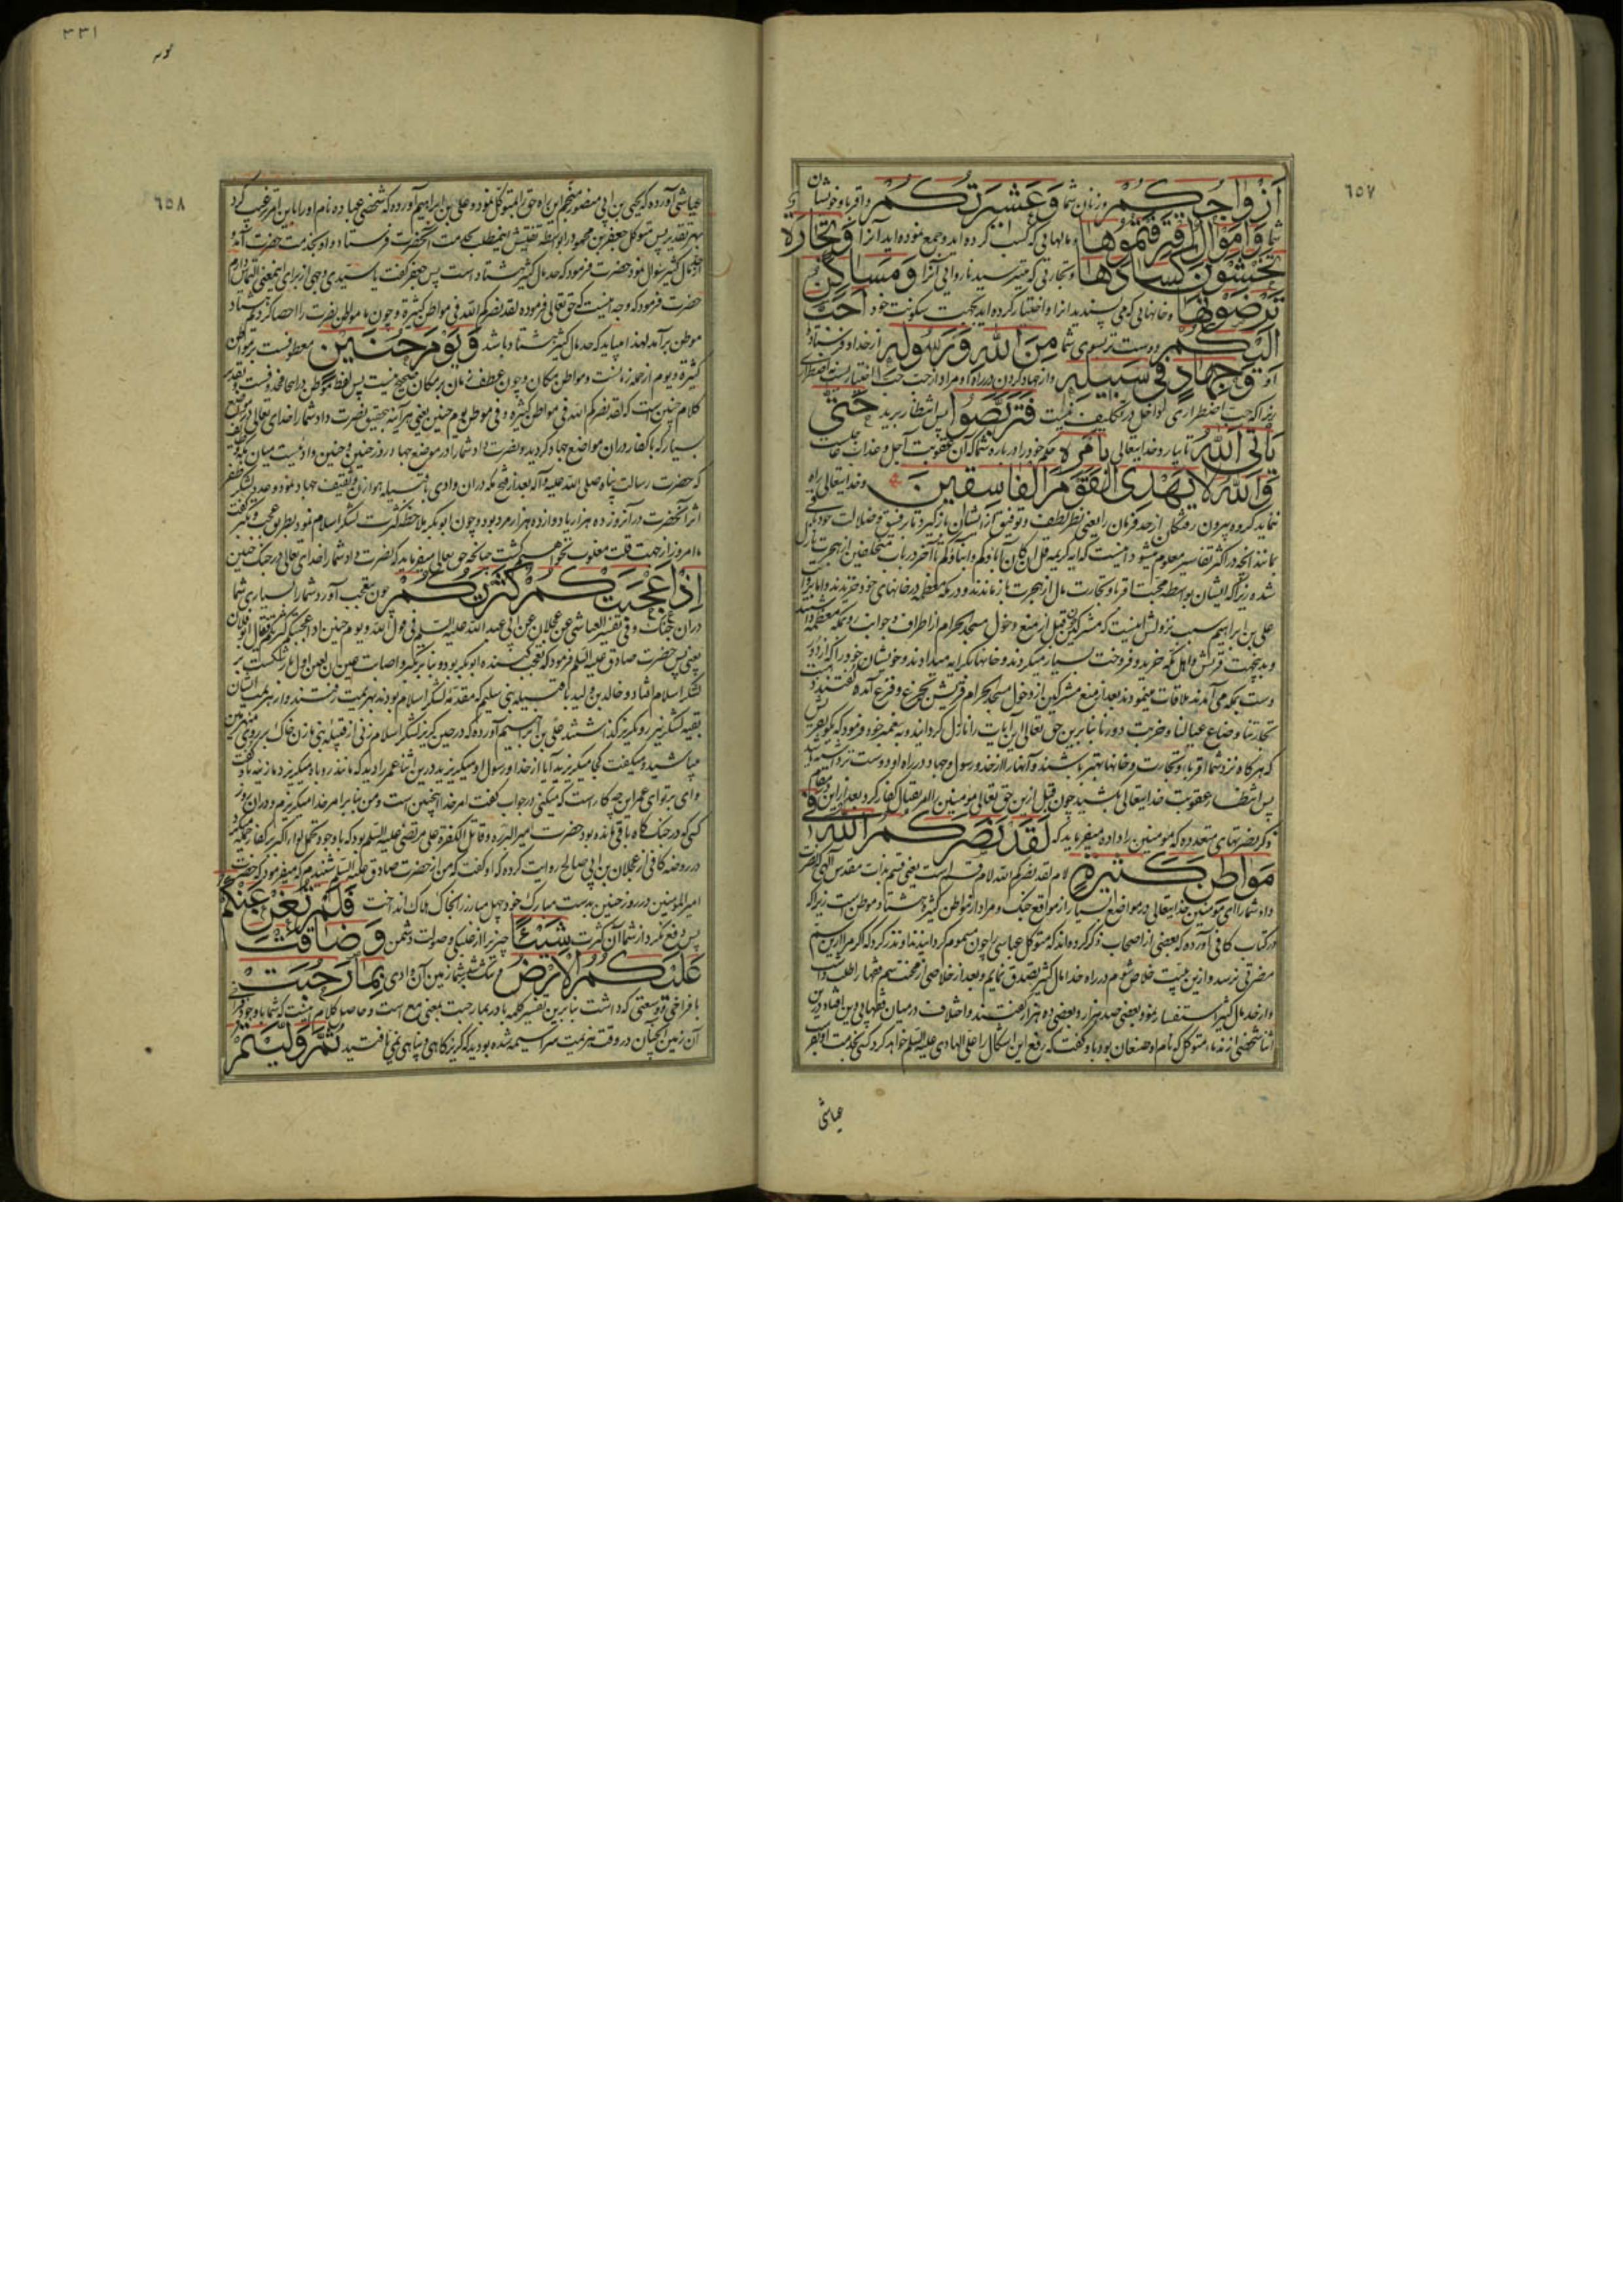 ٦٥٧
أَزْوَاجُكُمْ و زنان شما وَعَشِيرَتُكُمْ و اقربا و خویشان
شما وَأَمْوَالٌ اقْتَرَفْتُمُوهَا و مالهایی که کسب کرده اید و جمع نموده اید آنرا وَتِجَارَةٌ
تَخْشَوْنَ كَسَادَهَا و تجارتی که میترسید ناروایی آنرا وَمَسَاكِنُ
تَرْضَوْنَهَا و خانهایی که می پسندید آنرا و اختیار کرده اید بجهت سکونت خود أَحَبَّ
إِلَيْكُمْ دوست تر بسوی شما مِنَ اللَّهِ وَرَسُولِهِ از خدا و فرستاده
او وَجِهَادٍ فِي سَبِيلِهِ و از جهاد کردن در راه او و مراد از حب حب اختیاریست نه اضطراری
زیرا که حب اضطراری داخل در تکلیف نیست فَتَرَبَّصُوا پس انتظار برید حَتَّى
يَأْتِيَ اللَّهُ تا بیارد خدایتعالی بِأَمْرِهِ حکم خود را درباره شما که آن عقوبت آجل و عذاب عاجلست
وَاللَّهُ لَا يَهْدِي الْقَوْمَ الْفَاسِقِينَ و خدایتعالی راه
ننماید گروه بیرون رفتگان از حد فرمان را یعنی نظر لطف و توفیق از ایشان بازگیرد تا رفیق ضلالت خود
بمانند آنچه در اکثر تفاسیر معلوم میشود اینست که آیه کریمه قل ان کان آباؤکم و ابناؤکم تا آخر در باب متخلفین از هجرت نازل
شده زیرا که ایشان بواسطه محبت اقربا و تجارت مال از هجرت باز ماندند و در مکه معظمه در خانهای خود
علی بن ابراهیم سبب نزولش اینست که مشرکین قبل از منع دخول مسجد الحرام از اطراف و جوانب رو بمکه معظمه
و بدینجهت قریش و اهل مکه خرید و فروخت بسیار میکردند و خانها بکرایه میدادند و خویشان خود را که از دور
دست بمکه می آمدند ملاقات مینمودند بعد از منع مشرکین از دخول مسجد الحرام قریش بجزع و فزع آمده گفتند
تجارتنا و ضاع عیالنا و خربت دورنا بنابرین حق تعالی این آیات را نازل گردانید و به پیغمبر خود فرمود که بگو
که هرگاه نزد شما اقربا و تجارت و خانها بهتر باشند و آنها را از خدا و رسول و جهاد در راه او دوست تر داشته باشید
پس انتظار عقوبت خدایتعالی بکشید چون قبل ازین حق تعالی مومنین را امر بقتال کفار کرد بعد از این در مقام
ذکر نصرتهای متعدده که مومنین را داده میفرماید که لَقَدْ نَصَرَكُمُ اللَّهُ فِي
مَوَاطِنَ كَثِيرَةٍ لام لقد نصرکم الله لام قسم است یعنی قسم بذات مقدس الهی که نصرت
داد شما را ای مومنین خدایتعالی در مواضع بسیار از مواقع جنگ و مراد از مواطن کثیره هشتاد موطن است زیرا که
در کتاب کافی آورده که بعضی از اصحاب ذکر کرده اند که متوکل عباسی را چون مسموم گردانیدند او نذر کرد که اگر مرا ازین سم
مضرتی نرسد و ازین بلیت خلاص شوم در راه خدا مال کثیر تصدق نمایم و بعد از خلاصی از محنت سم فقها را طلب داشت
و از حد مال کثیر استفسار نمود بعضی صد هزار و بعضی ده هزار گفتند و اختلاف در میان فقهای دین افتاد درین
اثنا شخصی از ندماء متوکل که نام او صفعان بود با و گفت که رفع این اشکال را علی الهادی علیه السلم خواهد کرد کسی بخدمت او بفرست
عیاشی
٣٣١
٦٥٨
عیاشی آورده که یحیی بن ابی منصور منجم این راه حق را بمتوکل نمود و علی بن ابراهیم آورده که شخصی عباده نام او را باین امر ترغیب کرد
بهر تقدیر پس متوکل جعفر بن محمود را بواسطه تفتیش این مطلب بخدمت آنحضرت فرستاد و او بخدمت حضرت آمده و
از حد مال کثیر سوال نمود حضرت فرمود که حد مال کثیر هشتاد است پس جعفر گفت یا سیدی وجهی از برای اینمعنی التماس دارم
حضرت فرمود که وجه اینست که حق تعالی فرموده لقد نصرکم الله فی مواطن کثیرة و چون ما مواطن نصرت را احصا کردیم هشتاد
موطن بر آمد لهذا میباید که حد مال کثیر هشتاد باشد وَيَوْمَ حُنَيْنٍ معطوفست بر مواطن
کثیرة و یوم از جمله زمانست و مواطن مکان و چون عطف زمان بر مکان صحیح نیست پس لفظ موطن در اینجا محذوفست و تقدیر
کلام چنین است که لقد نصرکم الله فی مواطن کثیرة و فی موطن یوم حنین یعنی هر آینه بتحقیق نصرت داد شما را خدای تعالی در مواضع
بسیار که با کفار در آن مواضع جهاد کردید و نصرت داد شما را در موضع جهاد روز حنین و حنین وادئیست میان مکه و طایف
که حضرت رسالت پناه صلی الله علیه و آله بعد از فتح مکه در آن وادی با قبیله هوازن و ثقیف جهاد نمود و عدد لشکر ظفر
اثر آنحضرت در آنروز ده هزار یا دوازده هزار مرد بود و چون ابوبکر ملاحظه کثرت لشکر اسلام نمود بطریق عجب و تکبر گفت
ما امروز از جهت قلت مغلوب نخواهیم گشت چنانچه حق تعالی میفرماید که نصرت داد شما را خدای تعالی در جنگ حنین
إِذْ أَعْجَبَتْكُمْ كَثْرَتُكُمْ چون بتعجب آورد شما را بسیاری شما
در آن جنگ و فی تفسیر العیاشی عن عجلان عن ابی عبد الله علیه السلم فی قول الله و یوم حنین اذ اعجبتکم کثرتکم فقال ابو فلان
یعنی پس حضرت صادق علیه السلم فرمود که تعجب کننده ابوبکر بود
لشکر اسلام افتاد و خالد بن ولید با قبیله بنی سلیم که مقدمه لشکر اسلام بودند بهزیمت رفتند و از هزیمت ایشان
بقیه لشکر نیز رو بگریز گذاشتند علی بن ابراهیم آورده که در حین گریز لشکر اسلام زنی از قبیله بنی مازن خاک بر روی منهزمین
میپاشید و میگفت کجا میگریزید آیا از خدا و رسول او میگریزید درین اثنا عمر را دید که مانند روباه میگریزد مازنیه باو گفت
وای بر تو ای عمر این چه کار است که میکنی در جواب گفت امر خدا اینچنین است و من بنا بر امر خدا میگریزم و در آن روز
کسی که در جنگ گاه باقی مانده بود حضرت امیر البررة و قاتل الکفرة علی مرتضی علیه السلم بود که با وجود تحمل لواء اکبر بر کفار حمله میکرد
در روضه کافی از عجلان بن ابی صالح روایت کرده که او گفت که من از حضرت صادق علیه السلم شنیدم که میفرمود که حضرت
امیر المؤمنین در روز حنین بدست مبارک خود چهل مبارز را بخاک هلاک انداخت فَلَمْ تُغْنِ عَنْكُمْ
پس دفع نکرد از شما آن کثرت شَيْئًا چیزی را از غلبه و صولت دشمن وَضَاقَتْ
عَلَيْكُمُ الْأَرْضُ و تنگ شد بر شما زمین آن وادی بِمَا رَحُبَتْ
با فراخی و وسعتی که داشت بنابرین تفسیر کلمه با در بما رحبت بمعنی مع است و حاصل کلام اینست که شما با وجود فراخی
آن زمین آنچنان در وقت هزیمت سراسیمه شده بودید که گریزگاهی و پناهی نمی یافتید ثُمَّ وَلَّيْتُمْ